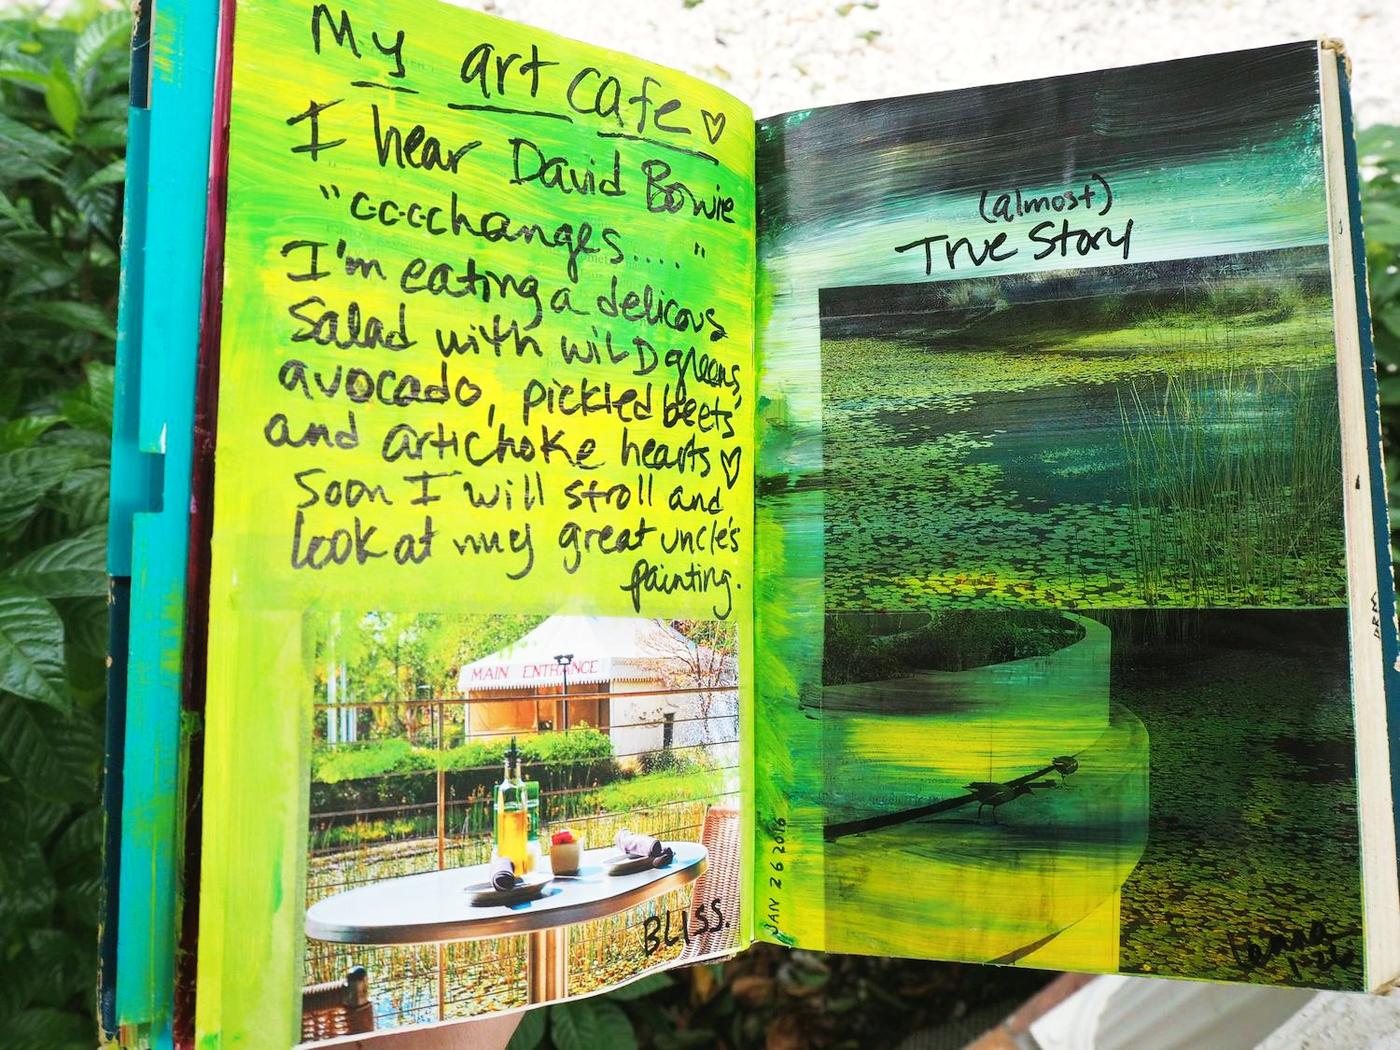 My art cafe ♡
I hear David Bowie
"c-c-c-changes.... "
I'm eating a delicous
Salad with wiLD greens,
avocado, pickled beets
and artichoke hearts ♡
Soon I will stroll and
look at my great uncle's
painting.
MAIN ENTRANCE
BLISS.
(almost)
True Story
JAN 26 2016
1-26